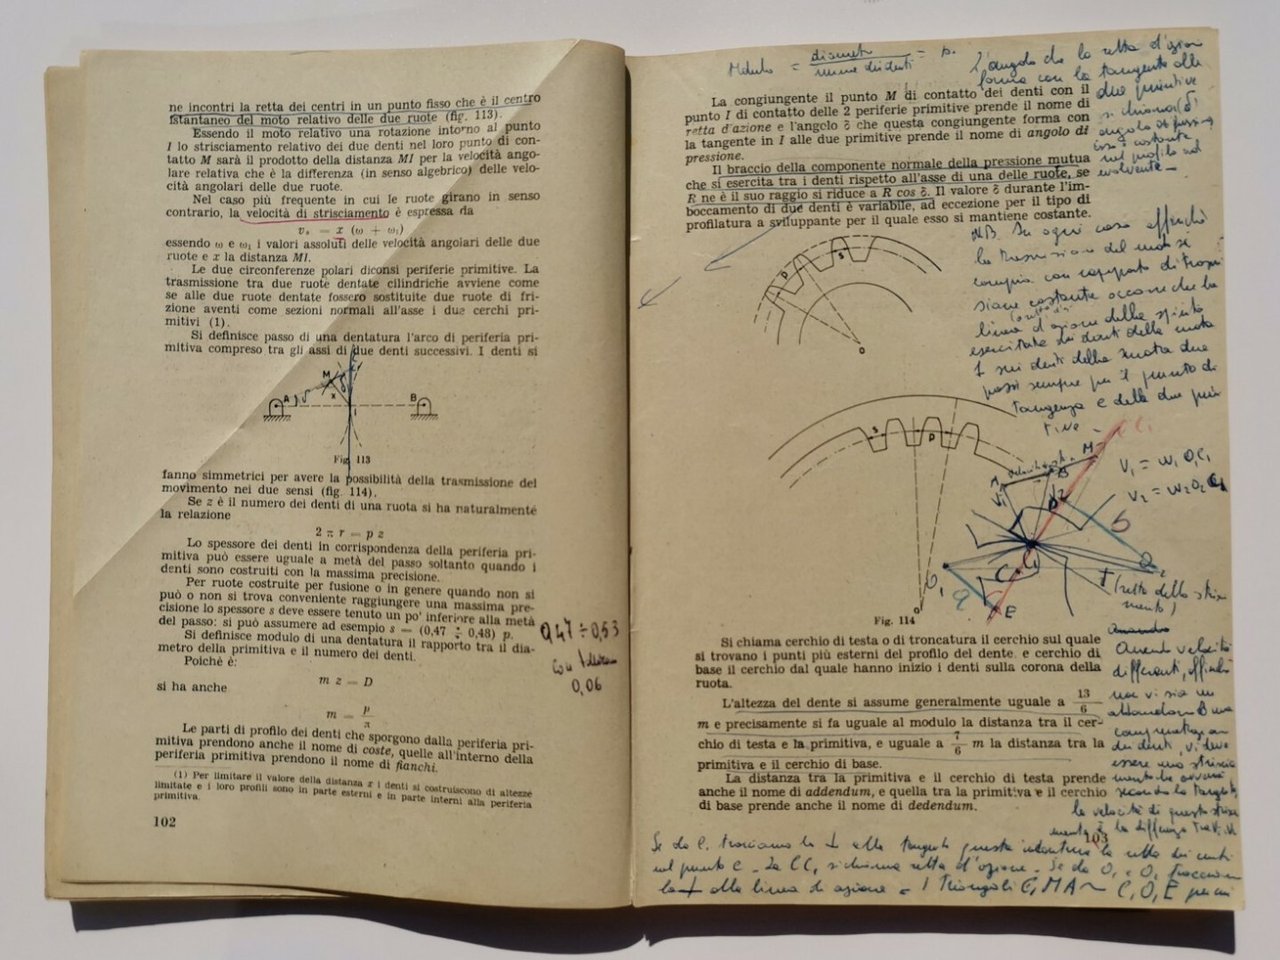 ne incontri la retta dei centri in un punto fisso che è il centro
istantaneo del moto relativo delle due ruote (fig. 113).
Essendo il moto relativo una rotazione intorno al punto
I lo strisciamento relativo dei due denti nel loro punto di con-
tatto M sarà il prodotto della distanza MI per la velocità ango-
lare relativa che è la differenza (in senso algebrico) delle velo-
cità angolari delle due ruote.
Nel caso più frequente in cui le ruote girano in senso
contrario, la velocità di strisciamento è espressa da
vₛ = x (ω + ω₁)
essendo ω e ω₁ i valori assoluti delle velocità angolari delle due
ruote e x la distanza MI.
Le due circonferenze polari diconsi periferie primitive. La
trasmissione tra due ruote dentate cilindriche avviene come
se alle due ruote dentate fossero sostituite due ruote di fri-
zione aventi come sezioni normali all'asse i due cerchi pri-
mitivi (1).
Si definisce passo di una dentatura l'arco di periferia pri-
mitiva compreso tra gli assi di due denti successivi. I denti si
M
x
A
B
I
Fig. 113
fanno simmetrici per avere la possibilità della trasmissione del
movimento nei due sensi (fig. 114).
Se z è il numero dei denti di una ruota si ha naturalmente
la relazione
2 π r = p z
Lo spessore dei denti in corrispondenza della periferia pri-
mitiva può essere uguale a metà del passo soltanto quando i
denti sono costruiti con la massima precisione.
Per ruote costruite per fusione o in genere quando non si
può o non si trova conveniente raggiungere una massima pre-
cisione lo spessore s deve essere tenuto un po' inferiore alla metà
del passo: si può assumere ad esempio s = (0,47 ÷ 0,48) p.
0,47 ÷ 0,53
con
0,06
Si definisce modulo di una dentatura il rapporto tra il dia-
metro della primitiva e il numero dei denti.
Poichè è:
m z = D
si ha anche
m = p/π
Le parti di profilo dei denti che sporgono dalla periferia pri-
mitiva prendono anche il nome di coste, quelle all'interno della
periferia primitiva prendono il nome di fianchi.
(1) Per limitare il valore della distanza x i denti si costruiscono di altezze
limitate e i loro profili sono in parte esterni e in parte interni alla periferia
primitiva.
102
Modulo = diametro / numero dei denti =
L'angolo che la retta d'azione
forma con la tangente alle
due primitive
si chiama (δ)
angolo di pressione
esso è costante
nel profilo ad
evolvente
La congiungente il punto M di contatto dei denti con il
punto I di contatto delle 2 periferie primitive prende il nome di
retta d'azione e l'angolo δ che questa congiungente forma con
la tangente in I alle due primitive prende il nome di angolo di
pressione.
Il braccio della componente normale della pressione mutua
che si esercita tra i denti rispetto all'asse di una delle ruote, se
R ne è il suo raggio si riduce a R cos δ. Il valore δ durante l'im-
boccamento di due denti è variabile, ad eccezione per il tipo di
profilatura a sviluppante per il quale esso si mantiene costante.
P
S
O
NB. In ogni caso affinchè
la trasmissione del moto si
compia con rapporto di trasmis
sione costante occorre che la
linea d'azione della spinta
esercitata dai denti della ruota
1 sui denti della ruota due
passi sempre per il punto di
tangenza C delle due primi
tive
S
P
O
Fig. 114
M
V₁ = ω₁ O₁C₁
V₂ = ω₂ O₂
A
B
V₁
V₂
C
O₁
O₂
E
T
(retta dello striscia
mento)
Si chiama cerchio di testa o di troncatura il cerchio sul quale
si trovano i punti più esterni del profilo del dente e cerchio di
base il cerchio dal quale hanno inizio i denti sulla corona della
ruota.
L'altezza del dente si assume generalmente uguale a 13/6
m e precisamente si fa uguale al modulo la distanza tra il cer-
chio di testa e la primitiva, e uguale a 7/6 m la distanza tra la
primitiva e il cerchio di base.
La distanza tra la primitiva e il cerchio di testa prende
anche il nome di addendum, e quella tra la primitiva e il cerchio
di base prende anche il nome di dedendum.
Avendo velocità
differenti, affinchè
non vi sia un
abbandono o una
compenetrazione
dei denti, vi deve
essere uno striscia
mento che avviene
secondo la tangente
la velocità di questo striscia
mento è la differenza tra V₁ V₂
103
Se da C tracciamo la ⊥ alla tangente questa incontra la retta dei centri
nel punto C. La CC₁ si chiama retta d'azione. Se da O₁ e O₂ tracciamo
la ⊥ alla linea di azione = I triangoli C₁MA ~ C₁O₁E